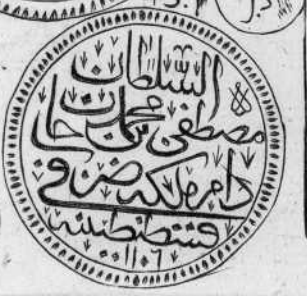 السلطان
مصطفى بن محمد خان
دام ملكه ضرب في
قسطنطينية
١١٠٦